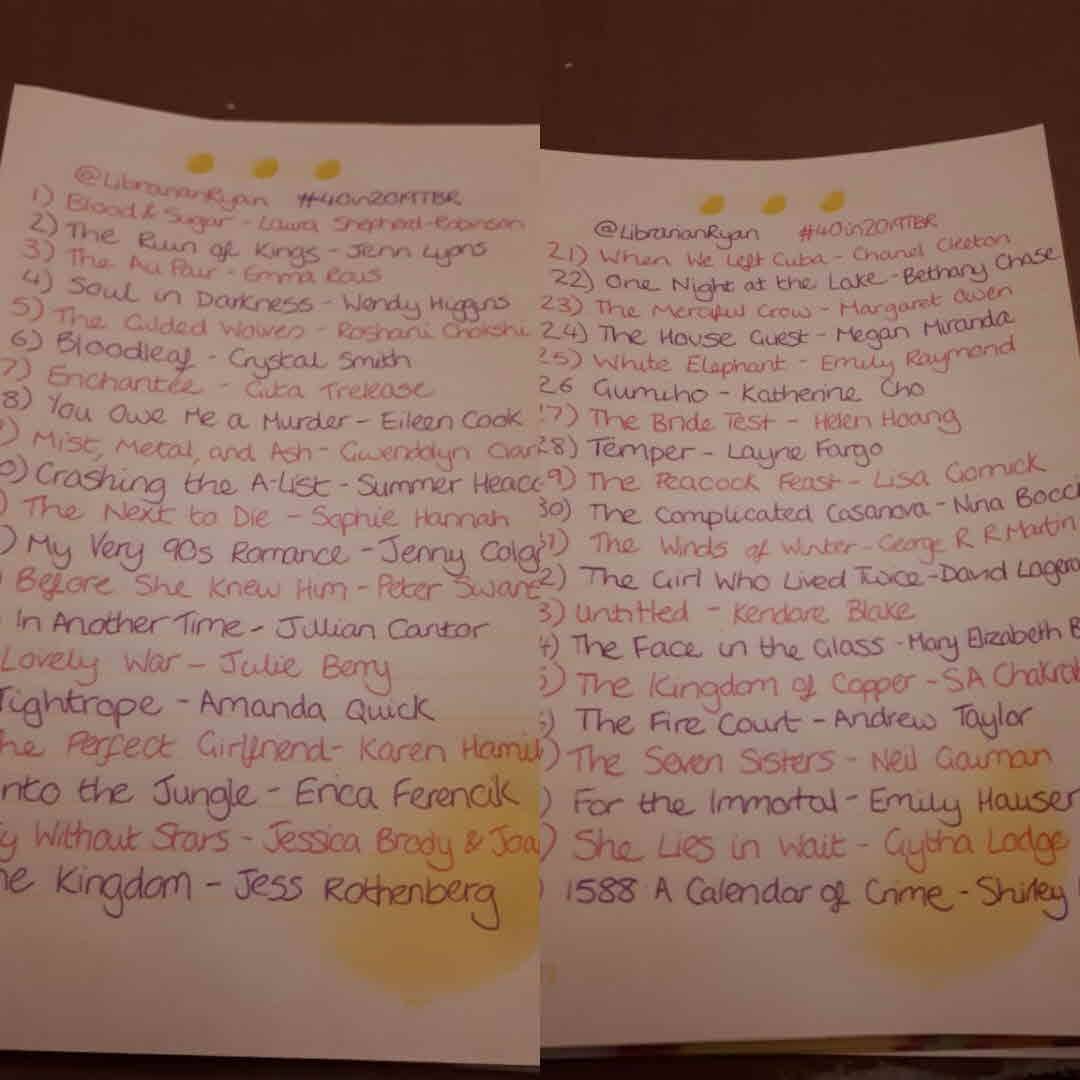 @LibrarianRyan #40in20MTBR
1) Blood & Sugar - Laura Shepherd-Robinson
2) The Ruin of Kings - Jenn Lyons
3) The Au Pair - Emma Rous
4) Soul in Darkness - Wendy Higgins
5) The Gilded Wolves - Roshani Chokshi
6) Bloodleaf - Crystal Smith
7) Enchantée - Gita Trelease
8) You Owe Me a Murder - Eileen Cook
) Mist, Metal, and Ash - Gwendolyn Clar
0) Crashing the A-List - Summer Heaco
) The Next to Die - Sophie Hannah
) My Very 90s Romance - Jenny Colg
Before She Knew Him - Peter Swans
In Another Time - Jillian Cantor
Lovely War - Julie Berry
Tightrope - Amanda Quick
he Perfect Girlfriend - Karen Hamil
nto the Jungle - Erica Ferencik
y Without Stars - Jessica Brody & Joa
he Kingdom - Jess Rothenberg
@LibrarianRyan
21) When We Left Cuba - Chanel Cleeton
22) One Night at the Lake - Bethany Chase
23) The Merciful Crow - Margaret Owen
24) The House Guest - Megan Miranda
25) White Elephant - Emily Raymond
26 Gumiho - Katherine Cho
27) The Bride Test - Helen Hoang
28) Temper - Layne Fargo
9) The Peacock Feast - Lisa Gornick
30) The Complicated Casanova - Nina Bocci
31) The Winds of Winter - George R R Martin
2) The Girl Who Lived Twice - David Lagerc
3) Untitled - Kendare Blake
4) The Face in the Glass - Mary Elizabeth B
5) The Kingdom of Copper - SA Chakrab
6) The Fire Court - Andrew Taylor
) The Seven Sisters - Neil Gaiman
) For the Immortal - Emily Hauser
) She Lies in Wait - Gytha Lodge
) 1588 A Calendar of Crime - Shirley